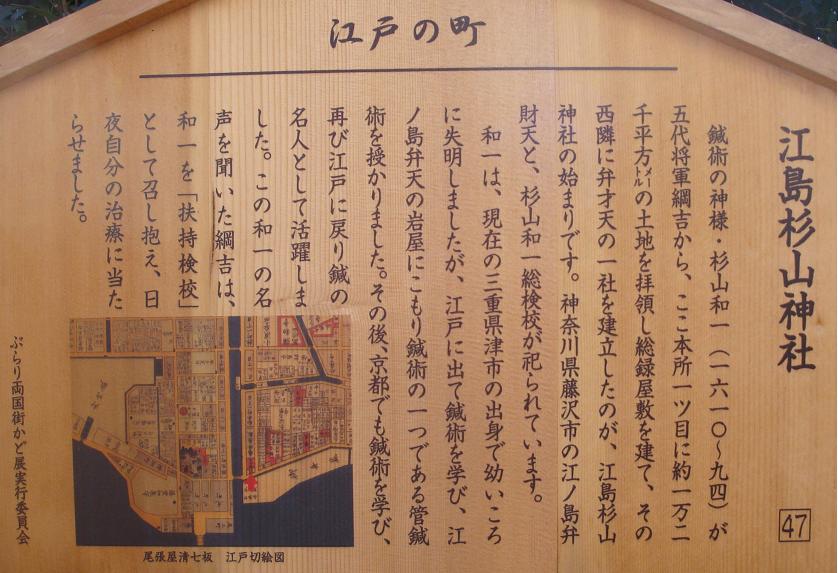 江戸の町
江島杉山神社
47
鍼術の神様・杉山和一(一六一〇〜九四)が
五代将軍綱吉から、ここ本所一ツ目に約一万二
千平方メートルの土地を拝領し総録屋敷を建て、その
西隣に弁才天の一社を建立したのが、江島杉山
神社の始まりです。神奈川県藤沢市の江ノ島弁
財天と、杉山和一総検校が祀られています。
和一は、現在の三重県津市の出身で幼いころ
に失明しましたが、江戸に出て鍼術を学び、江
ノ島弁天の岩屋にこもり鍼術の一つである管鍼
術を授かりました。その後、京都でも鍼術を学び、
再び江戸に戻り鍼の
名人として活躍しま
した。この和一の名
声を聞いた綱吉は、
和一を「扶持検校」
として召し抱え、日
夜自分の治療に当た
らせました。
尾張屋清七板 江戸切絵図
ぶらり両国街かど展実行委員会